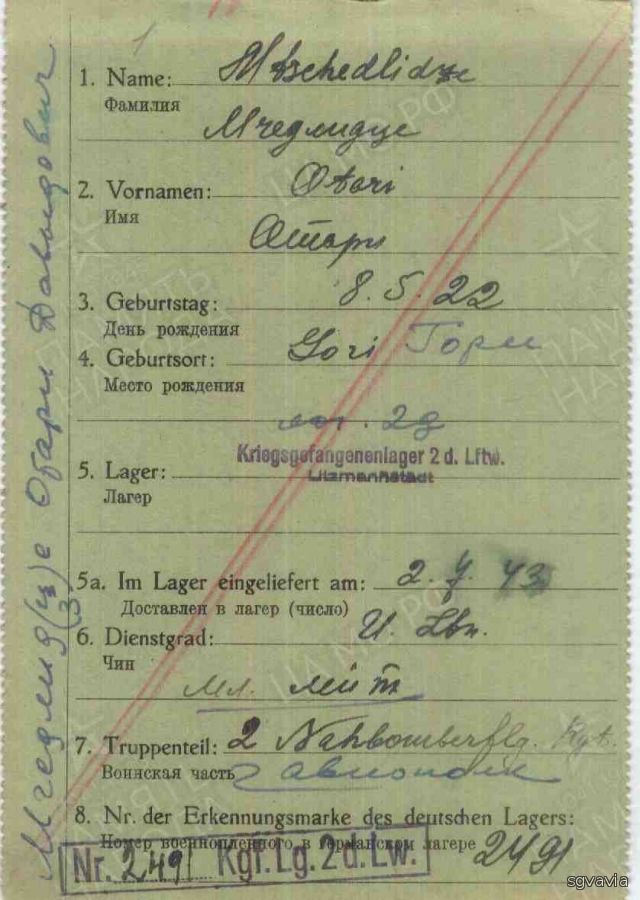 1
1. Name: Mtschedlidze
Фамилия
Мчедлидце
2. Vornamen: Otari
Имя
Отари
3. Geburtstag: 8.5.22
День рождения
4. Geburtsort: Gori Гори
Место рождения
Kriegsgefangenenlager 2 d. Lftw.
Litzmannstadt
5. Lager:
Лагер
5a. Im Lager eingeliefert am: 2.7.43
Доставлен в лагер (число)
6. Dienstgrad: U. Ltn.
Чин
Мл. лейт
7. Truppenteil: 2 Nahbomberflg. Rgt.
Воинская часть 2 авиополк
8. Nr. der Erkennungsmarke des deutschen Lagers:
Номер военнопленного в германском лагере 2491
Nr. 2491 Kgf.Lg. 2 d. Lw.
Мчедлид(ц)е Отари Давыдович
(з)
sgvavia